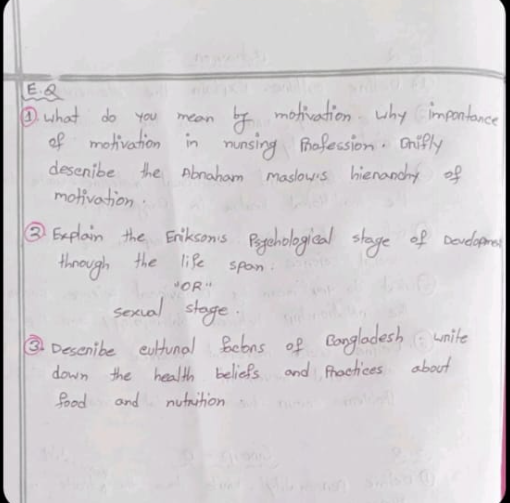 E.Q
① What do you mean by motivation. Why importance
of motivation in nursing Profession. Brifly
describe the Abraham maslow's hierarchy of
motivation.
② Explain the Erikson's Psychological stage of Developmen
through the life span.
"OR"
sexual stage.
③ Describe cultural factors of Bangladesh. write
down the health beliefs and Practices about
food and nutrition